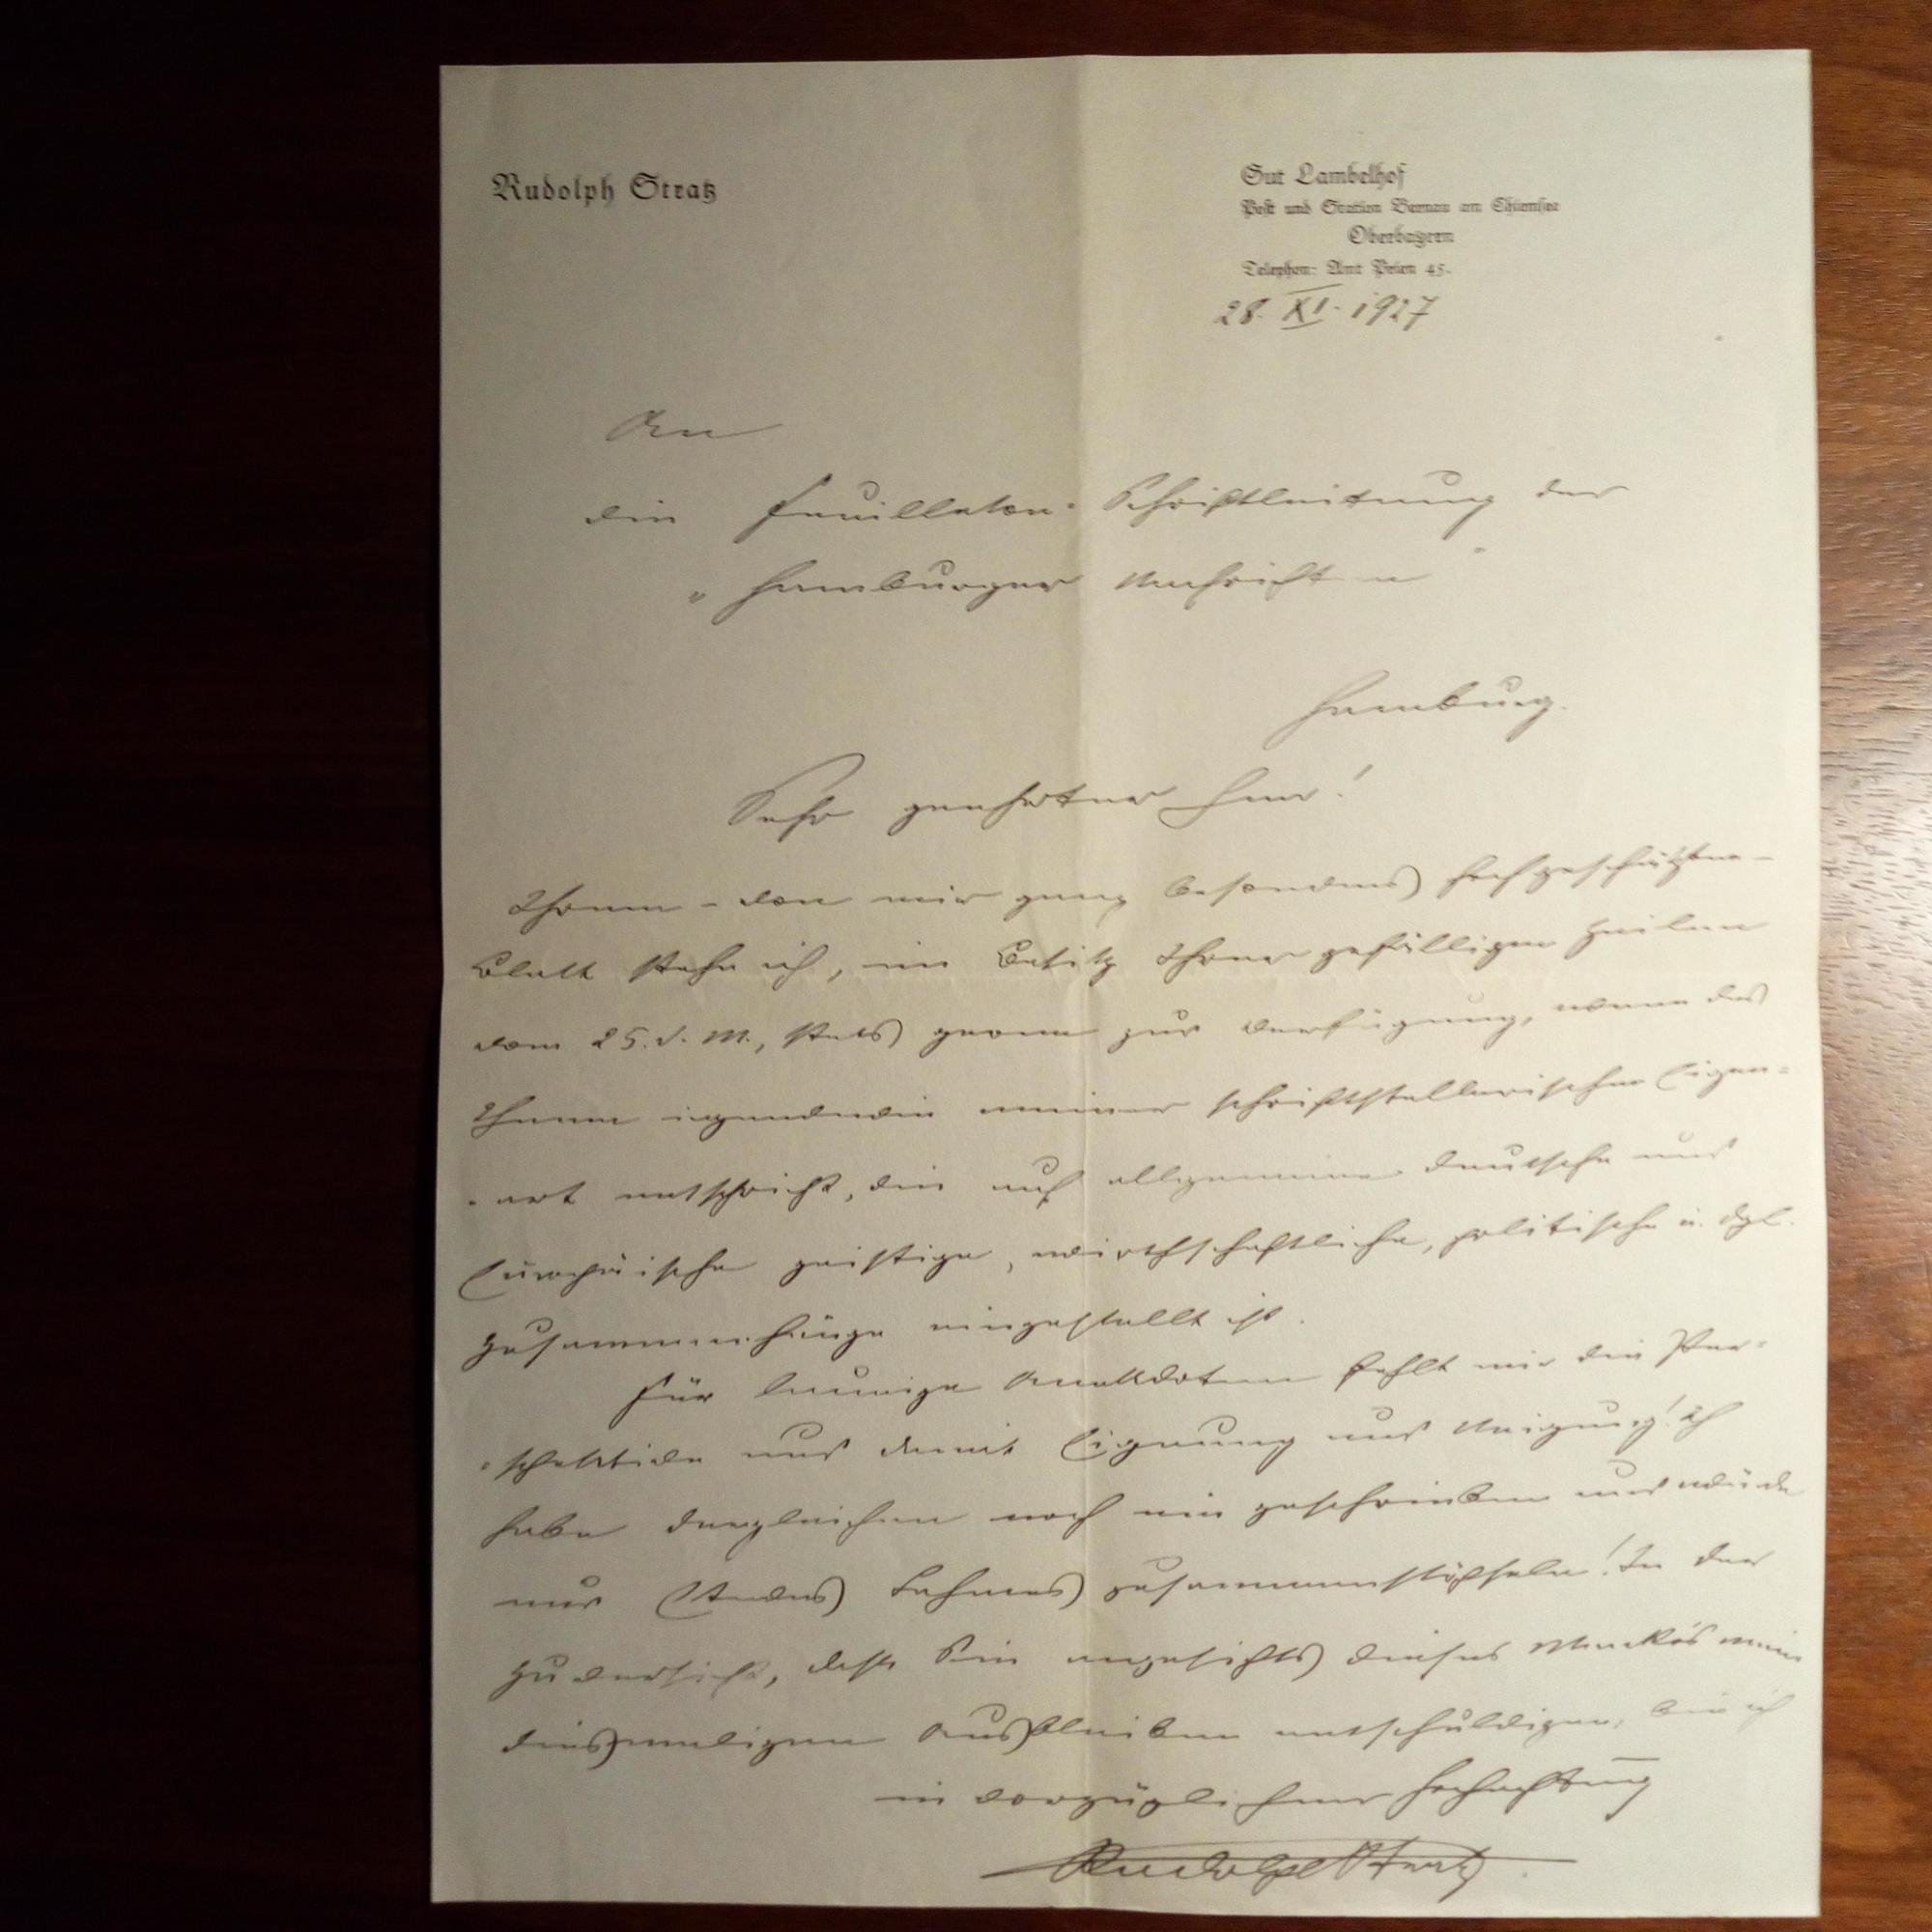 Rudolph Stratz
Gut Lambelhof
Post und Station Bernau am Chiemsee
Oberbayern
Telephon: Amt Prien 45.
28. XI. 1927
An
die Feuilleton-Schriftleitung der
„Hamburger Nachrichten"
Hamburg.
Sehr geehrter Herr!
Ihrem – von mir ganz besonders hochgeschätzten –
Blatt stehe ich, im Besitz Ihrer gefälligen Zeilen
vom 25. d. M., stets gerne zur Verfügung, wenn das
Thema irgendwie meiner schriftstellerischen Eigen-
-art entspricht, die auf allgemeine deutsche und
Europäische geistige, wirthschaftliche, politische u. dgl.
Zusammenhänge eingestellt ist.
Für launige Anekdoten fehlt mir die Per-
-spektive und damit Eignung und Neigung! Ich
habe dergleichen noch nie geschrieben und würde
nur zusammenstöpseln! In der
Zuversicht, dass Sie angesichts dieses Mankos mein
diesmaliges Ausbleiben entschuldigen, bin ich
in vorzüglicher Hochachtung
Rudolph Stratz